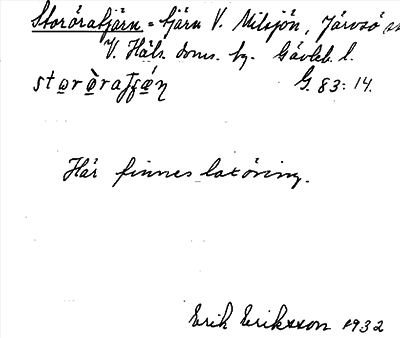 Storöratjärn = tjärn V. Nilsjön, Järvsö
V. Häls. doms. by. Gävleb. l.
G. 83: 14.
Här finnes laxöring.
Erik Eriksson 1932